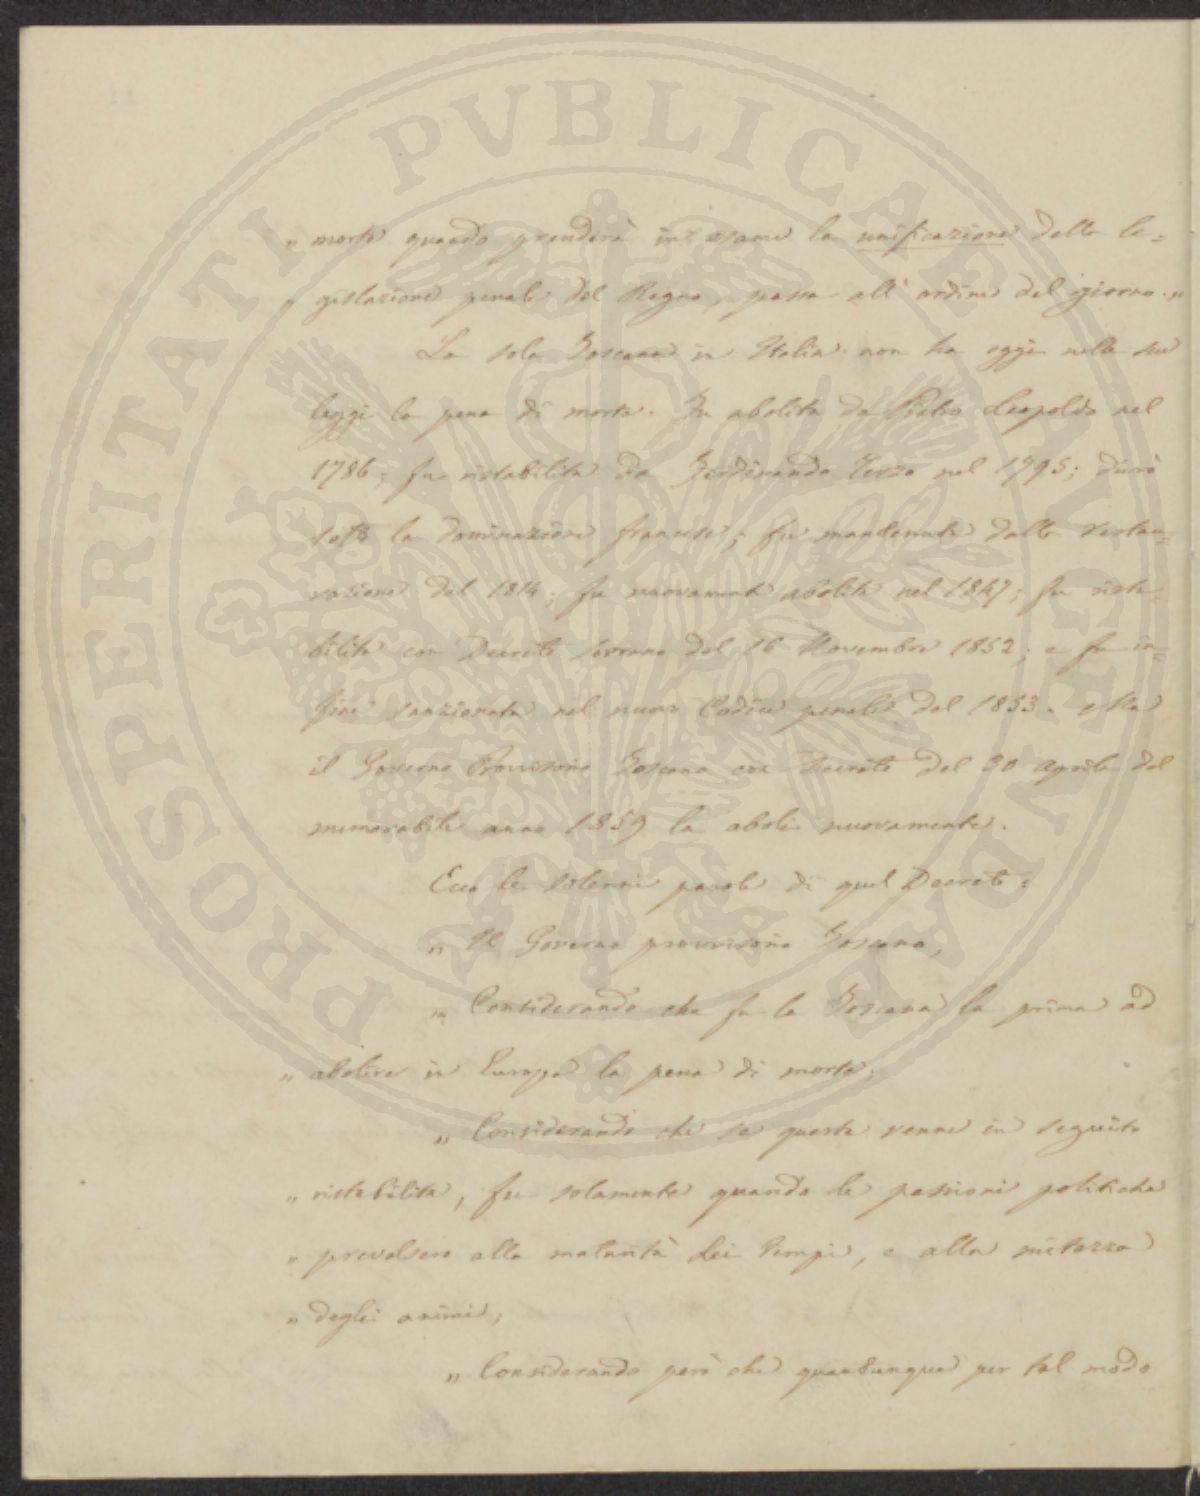 „ morte quando prenderà in esame la unificazione della le=
„ gislazione penale del Regno, passa all'ordine del giorno. „
La sola Toscana in Italia non ha oggi nelle sue
leggi la pena di morte. Fu abolita da Pietro Leopoldo nel
1786; fu ristabilita da Ferdinando Terzo nel 1795; durò
sotto la dominazione francese; fu mantenuta dalla restau=
razione del 1814; fu nuovamente abolita nel 1847; fu rista=
bilita con Decreto sovrano del 16 Novembre 1852; e fu in=
fine sanzionata nel nuovo Codice penale del 1853. Ma
il Governo Provvisorio Toscano con Decreto del 30 aprile del
memorabile anno 1859 la abolì nuovamente.
Ecco le solenni parole di quel Decreto:
„ Il Governo provvisorio Toscano,
„ Considerando che fu la Toscana la prima ad
„ abolire in Europa la pena di morte;
„ Considerando che se questa venne in seguito
„ ristabilita, fu solamente quando le passioni politiche
„ prevalsero alla maturità dei tempi, e alla mitezza
„ degli animi;
„ Considerando però che quantunque per tal modo
PROSPERITATI PVBLICAE AVGENDAE